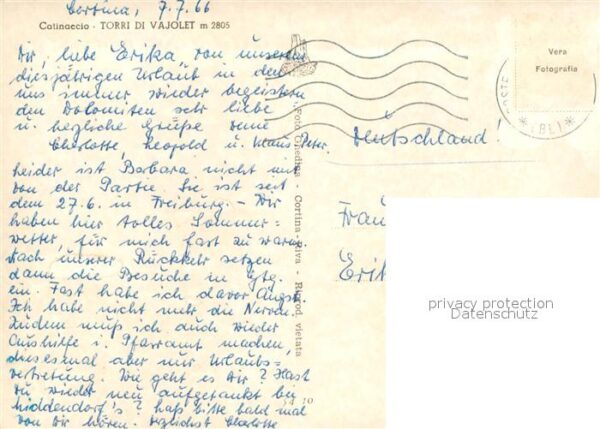 Cortina, 7.7.66
Catinaccio - TORRI DI VAJOLET m 2805
Dir, liebe Erika, von unserem
diesjährigen Urlaub in den
uns immer wieder begeistern
den Dolomiten sehr liebe
u. herzliche Grüße Deine
Charlotte, Leopold u. Klaus Peter.
Leider ist Barbara nicht mit
von der Partie. Sie ist seit
dem 27.6. in Freiburg. - Wir
haben hier tolles Sommer-
wetter, für mich fast zu warm.
Nach unserer Rückkehr setzen
dann die Besuche in
ein. Fast habe ich davor Angst.
Ich habe nicht mehr die Nerven.
Zudem muß ich auch wieder
Aushilfe i. Pfarramt machen,
diesesmal aber nur Urlaubs-
vertretung. Wie geht es Dir? Hast
Du wieder neu aufgetankt bei
hiddendorf's? Laß bitte bald mal
von Dir hören. Herzlichst Charlotte
Foto Ghedina - Cortina - Riva - Riprod. vietata
10
Vera
Fotografia
POSTE
* (BL) *
Deutschland!
Frau
Erik
privacy protection
Datenschutz